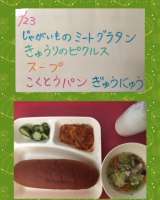 1/23
じゃがいもの ミートグラタン
きゅうりのピクルス
スープ
こくとうパン ぎゅうにゅう